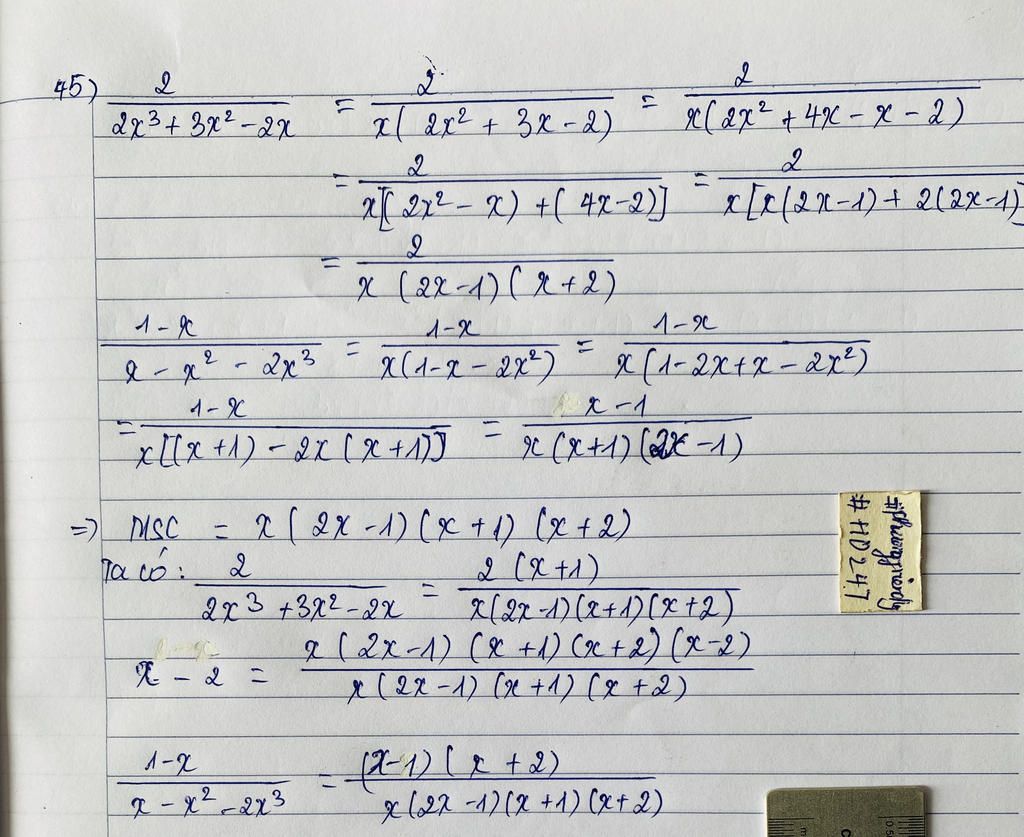 45) 2/(2x³ + 3x² - 2x) = 2/(x(2x² + 3x - 2)) = 2/(x(2x² + 4x - x - 2))
= 2/(x[(2x² - x) + (4x - 2)]) = 2/(x[x(2x - 1) + 2(2x - 1)])
= 2/(x(2x - 1)(x + 2))
(1 - x)/(x - x² - 2x³) = (1 - x)/(x(1 - x - 2x²)) = (1 - x)/(x(1 - 2x + x - 2x²))
= (1 - x)/(x[(x + 1) - 2x(x + 1)]) = (x - 1)/(x(x + 1)(2x - 1))
=> MSC = x(2x - 1)(x + 1)(x + 2)
Ta có: 2/(2x³ + 3x² - 2x) = 2(x + 1)/(x(2x - 1)(x + 1)(x + 2))
x - 2 = x(2x - 1)(x + 1)(x + 2)(x - 2)/(x(2x - 1)(x + 1)(x + 2))
(1 - x)/(x - x² - 2x³) = (x - 1)(x + 2)/(x(2x - 1)(x + 1)(x + 2))
#HD247